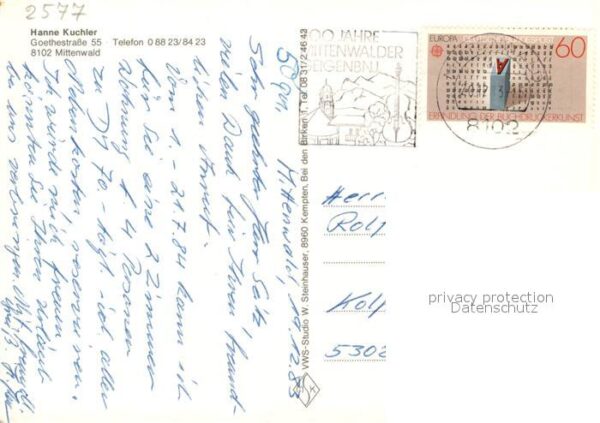 2577
Hanne Kuchler
Goethestraße 55 · Telefon 0 88 23/84 23
8102 Mittenwald
Mittenwald, 19.12.83
Sehr geehrter Herr Seitz
viele Dank für Ihren freund-
lichen Anruf.
Vom 1. - 21.7.84 kann ich
für Sie eine 2 Zimmer
Wohnung f. 4 Personen
zu DM 70.- tägl. incl. aller
Nebenkosten reservieren.
Ich würde mich freuen
könnten Sie Ihren Urlaub
bei uns verbringen. Mit freundl.
VWS-Studio W. Steinhauser, 8960 Kempten, Bei den Birken 1, Tel. 08 31/2 46 42
300 JAHRE
MITTENWALDER
GEIGENBAU
EUROPA
60
8102
ERFINDUNG DER BUCHDRUCKERKUNST
Herr
Rolf
Kolp
5302
privacy protection
Datenschutz